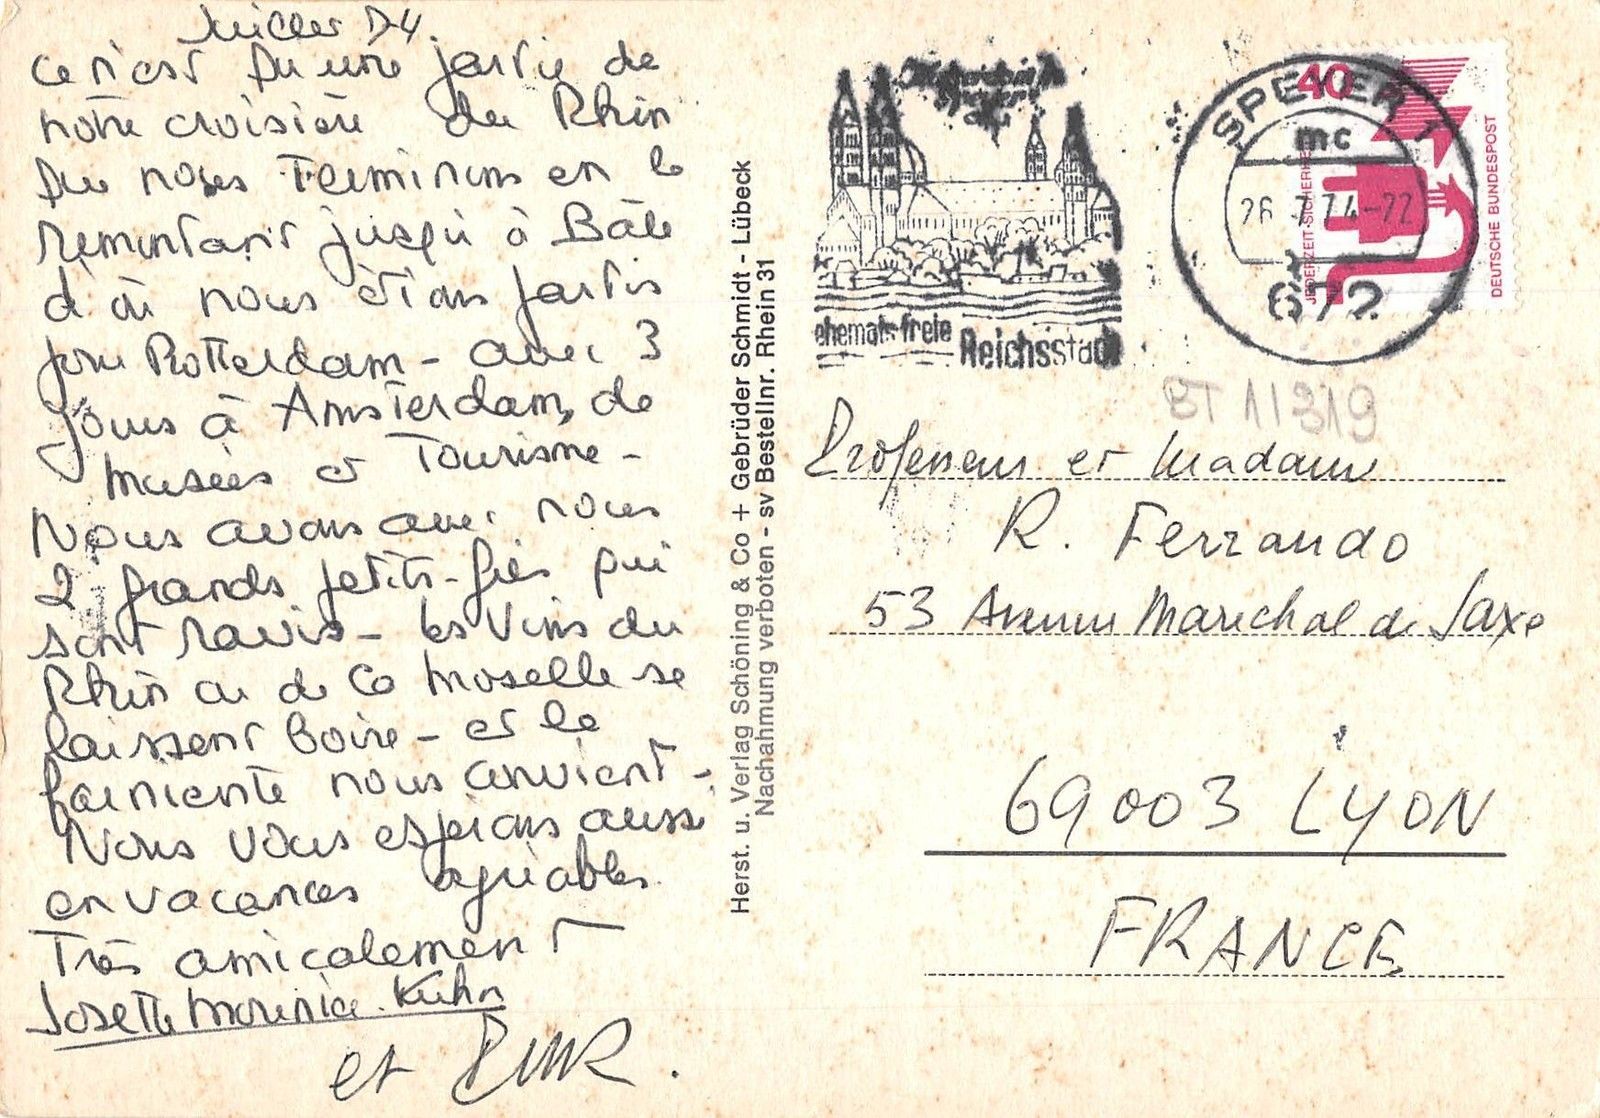 Juillet 74.
Ce n'est qu'une partie de
notre croisière du Rhin
que nous terminons en le
remontant jusqu'à Bâle
d'où nous étions partis
pour Rotterdam - avec 3
jours à Amsterdam, de
musées et Tourisme -
Nous avons avec nous
2 grands petits-fils qui
sont ravis - les vins du
Rhin ou de la Moselle se
laissent boire - et le
farniente nous convient -
Nous vous espérons aussi
en vacances agréables.
Très amicalement
Josette Kuhn
et
Herst. u. Verlag Schöning & Co + Gebrüder Schmidt - Lübeck
Nachahmung verboten - sv Bestellnr. Rhein 31
ehemals freie Reichsstadt
SPEYER 1
mc
26.7.74-22
672
40
JEDERZEIT SICHERHEIT
DEUTSCHE BUNDESPOST
BT 11319
Professeur et Madame
R. Ferrando
53 Avenue Marechal de Saxe
69003 LYON
FRANCE